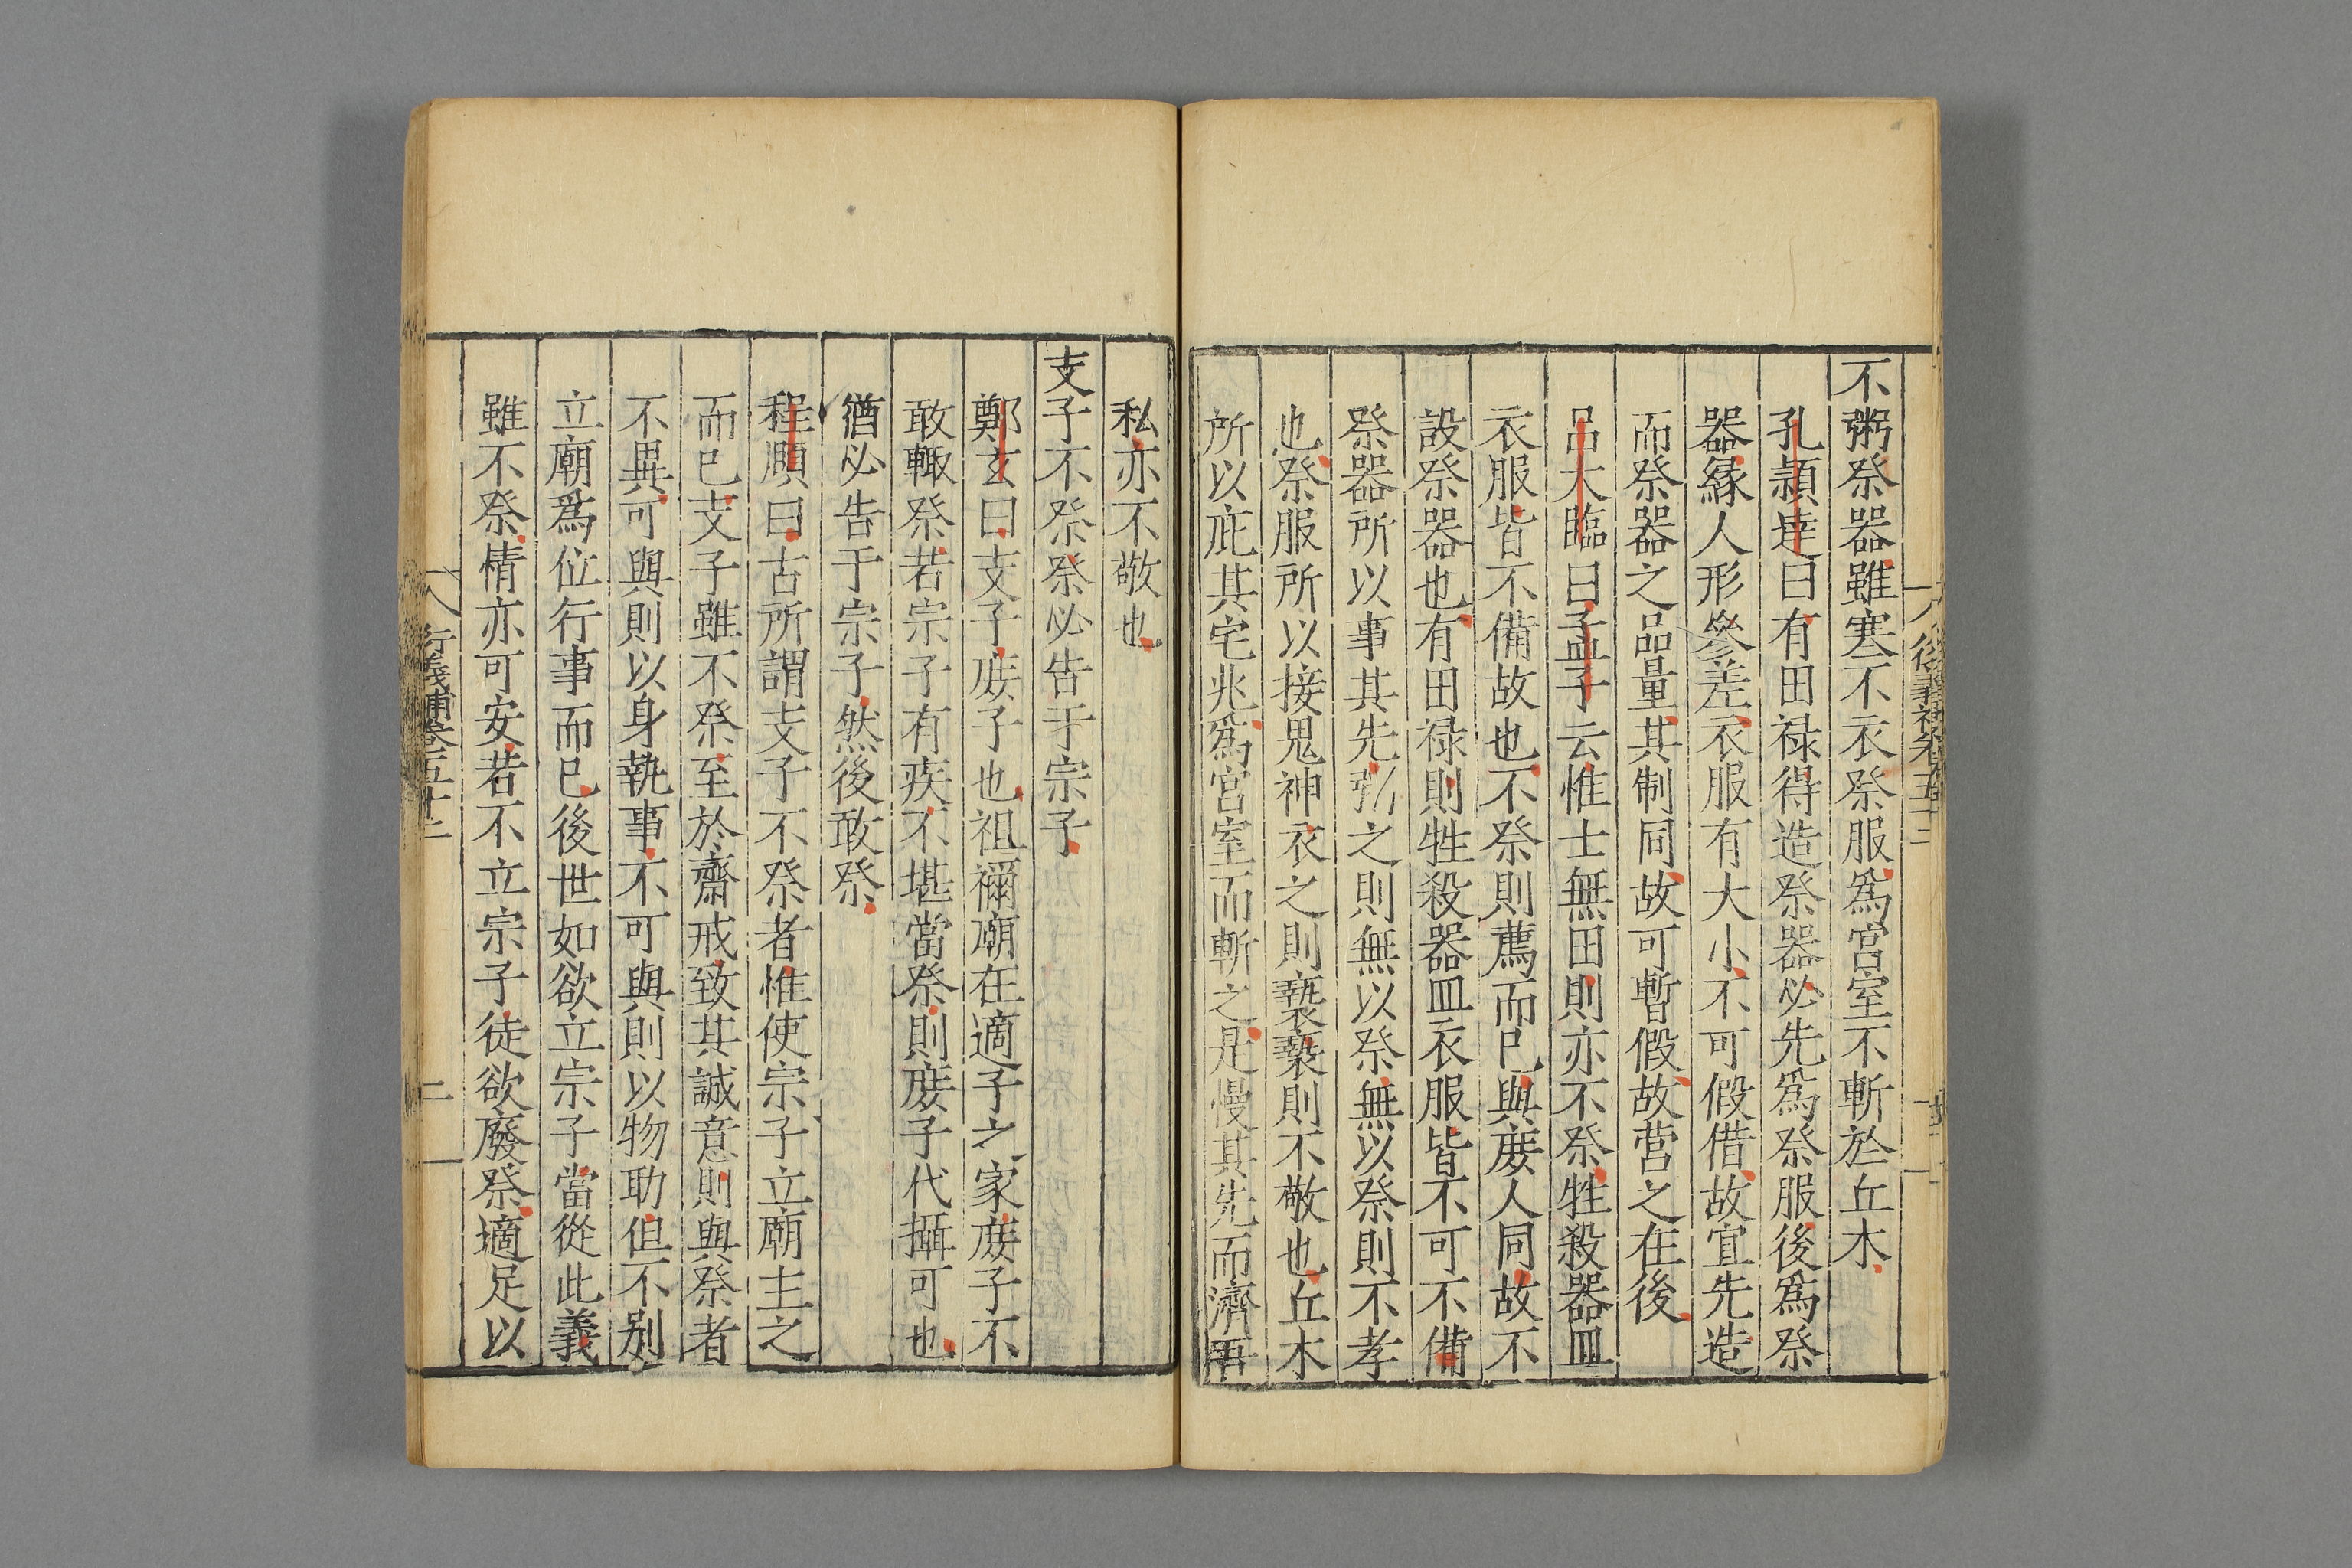 不粥祭器雖寒不衣祭服爲宮室不斬於丘木
孔頴逹曰有田禄得造祭器必先爲祭服後爲祭
器縁人形參差衣服有大小不可假借故宜先造
而祭器之品量其制同故可暫假故营之在後
呂大臨曰孟子云惟士無田則亦不祭牲殺器皿
衣服皆不備故也不祭則薦而已與庻人同故不
設祭器也有田禄則牲殺器皿衣服皆不可不備
祭器所以事其先粥之則無以祭無以祭則不孝
也祭服所以接鬼神衣之則褻褻則不敬也丘木
所以庇其宅兆爲宮室而斬之是慢其先而濟吾
私亦不敬也
支子不祭祭必告于宗子
鄭玄曰支子庻子也祖禰廟在適子之家庻子不
敢輙祭若宗子有疾不堪當祭則庻子代攝可也
猶必告于宗子然後敢祭
程頤曰古所謂支子不祭者惟使宗子立廟主之
而已支子雖不祭至於齋戒致其誠意則與祭者
不異可與則以身執事不可與則以物助但不别
立廟爲位行事而已後世如欲立宗子當從此義
雖不祭情亦可安若不立宗子徒欲廢祭適足以
衍義補卷五十二
二